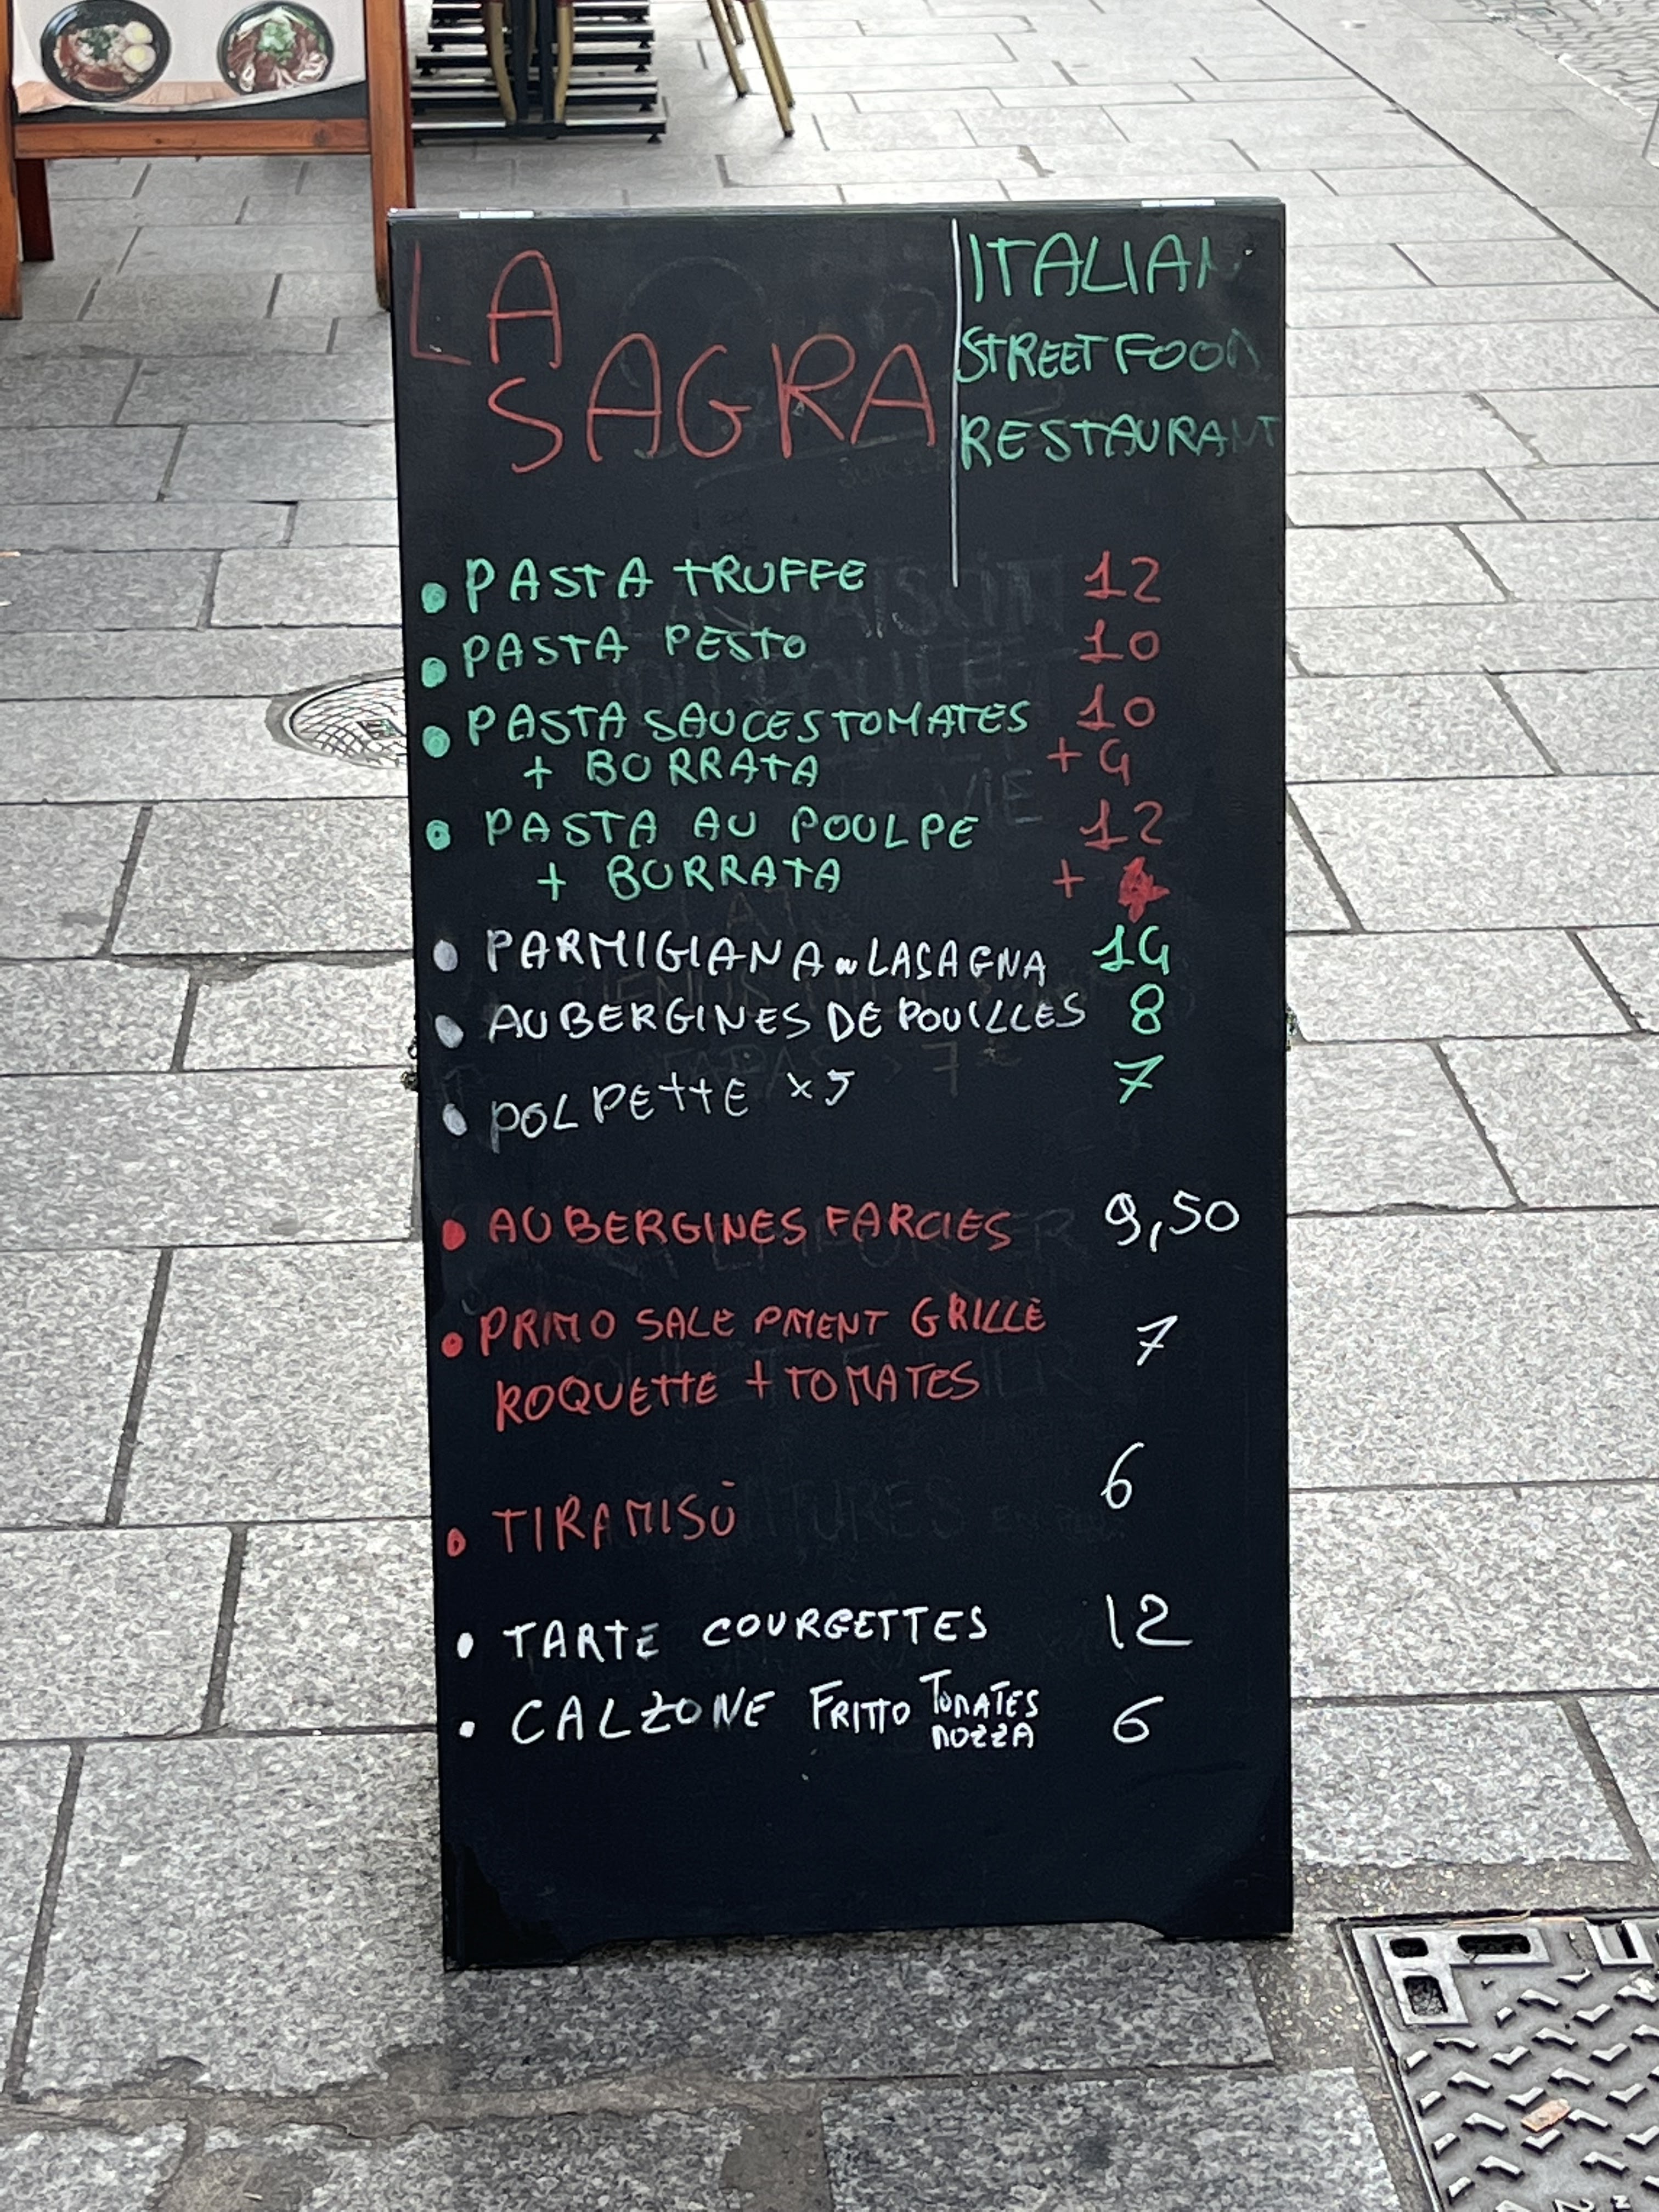 LA
SAGRA
ITALIAN
STREET FOOD
RESTAURANT
PASTA TRUFFE 12
PASTA PESTO 10
PASTA SAUCES TOMATES 10
+ BORRATA +4
PASTA AU POULPE 12
+ BURRATA +
PARMIGIANA ou LASAGNA 14
AUBERGINES DE POUILLES 8
POLPETTE x5 7
AUBERGINES FARCIES 9,50
PRIMO SALE PMENT GRILLÈ 7
ROQUETTE + TOMATES
TIRAMISÙ 6
TARTE COURGETTES 12
CALZONE FRITTO TOMATES 6
MOZZA